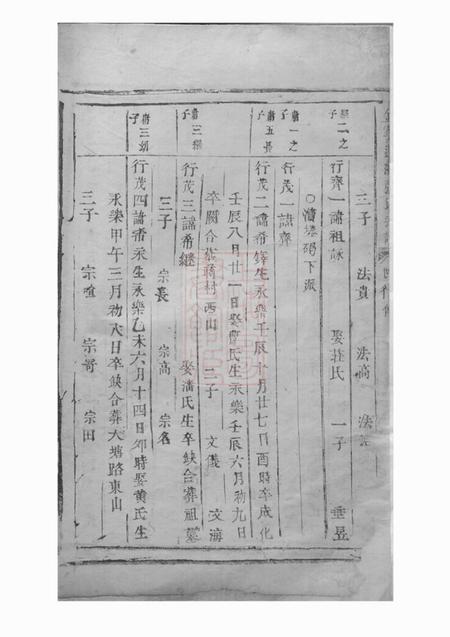 三子 法貴 法高 法
二之子
行齊一諱祖詠 娶莊氏 一子 垂昱
○ 塘下派
一之子
行茂一諱齊
五長子
行茂二諱希鐸生永樂壬辰十月廿七日酉時卒成化
壬辰八月廿一日娶曹氏生永樂壬辰六月初九日
卒闕合葬蔣村西山 三子 文儀 文海
三
行茂三諱希繼 娶潘氏生卒缺合葬祖墓
三子 宗長 宗高 宗名
三幼子
行茂四諱希永生永樂乙未六月十四日卯時娶黄氏生
永樂甲午三月初六日卒缺合葬大塘路東山
三子 宗 宗哥 宗田